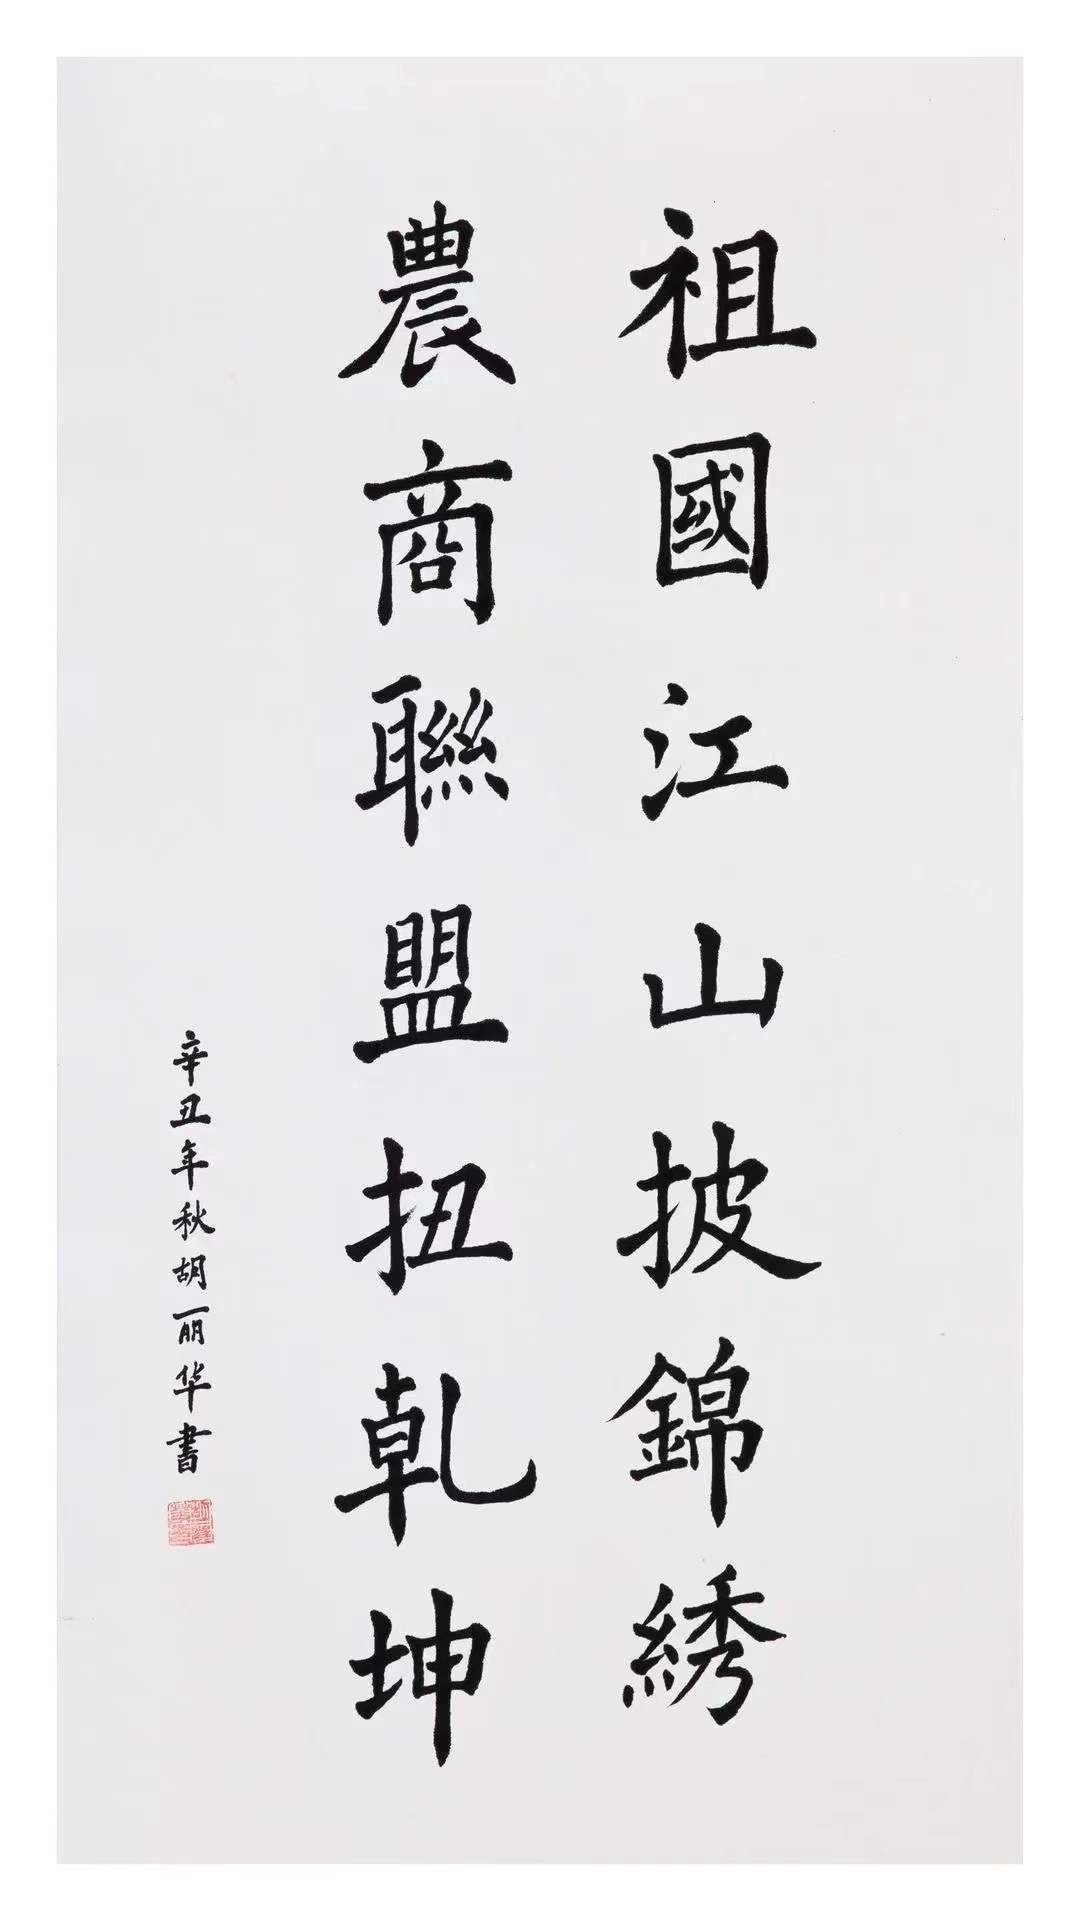 祖國江山披錦綉
農商聯盟扭乾坤
辛丑年秋胡丽华書